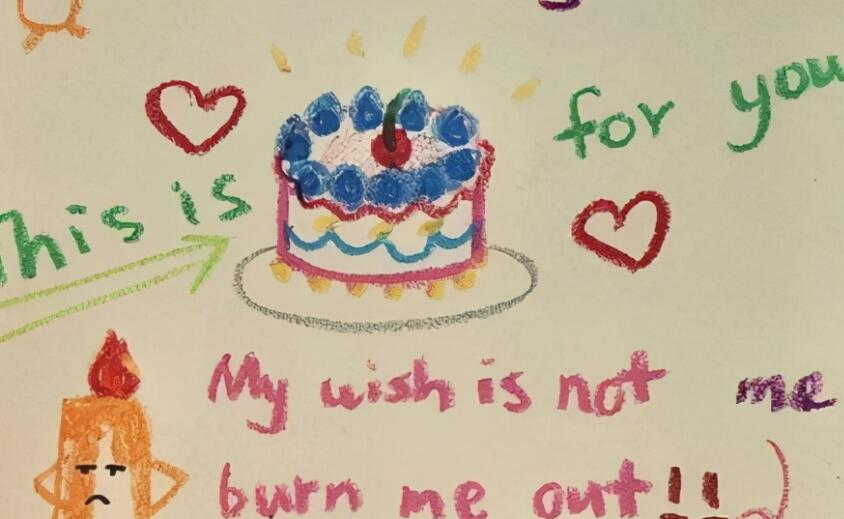 This is for you
My wish is not me
burn me out!!)